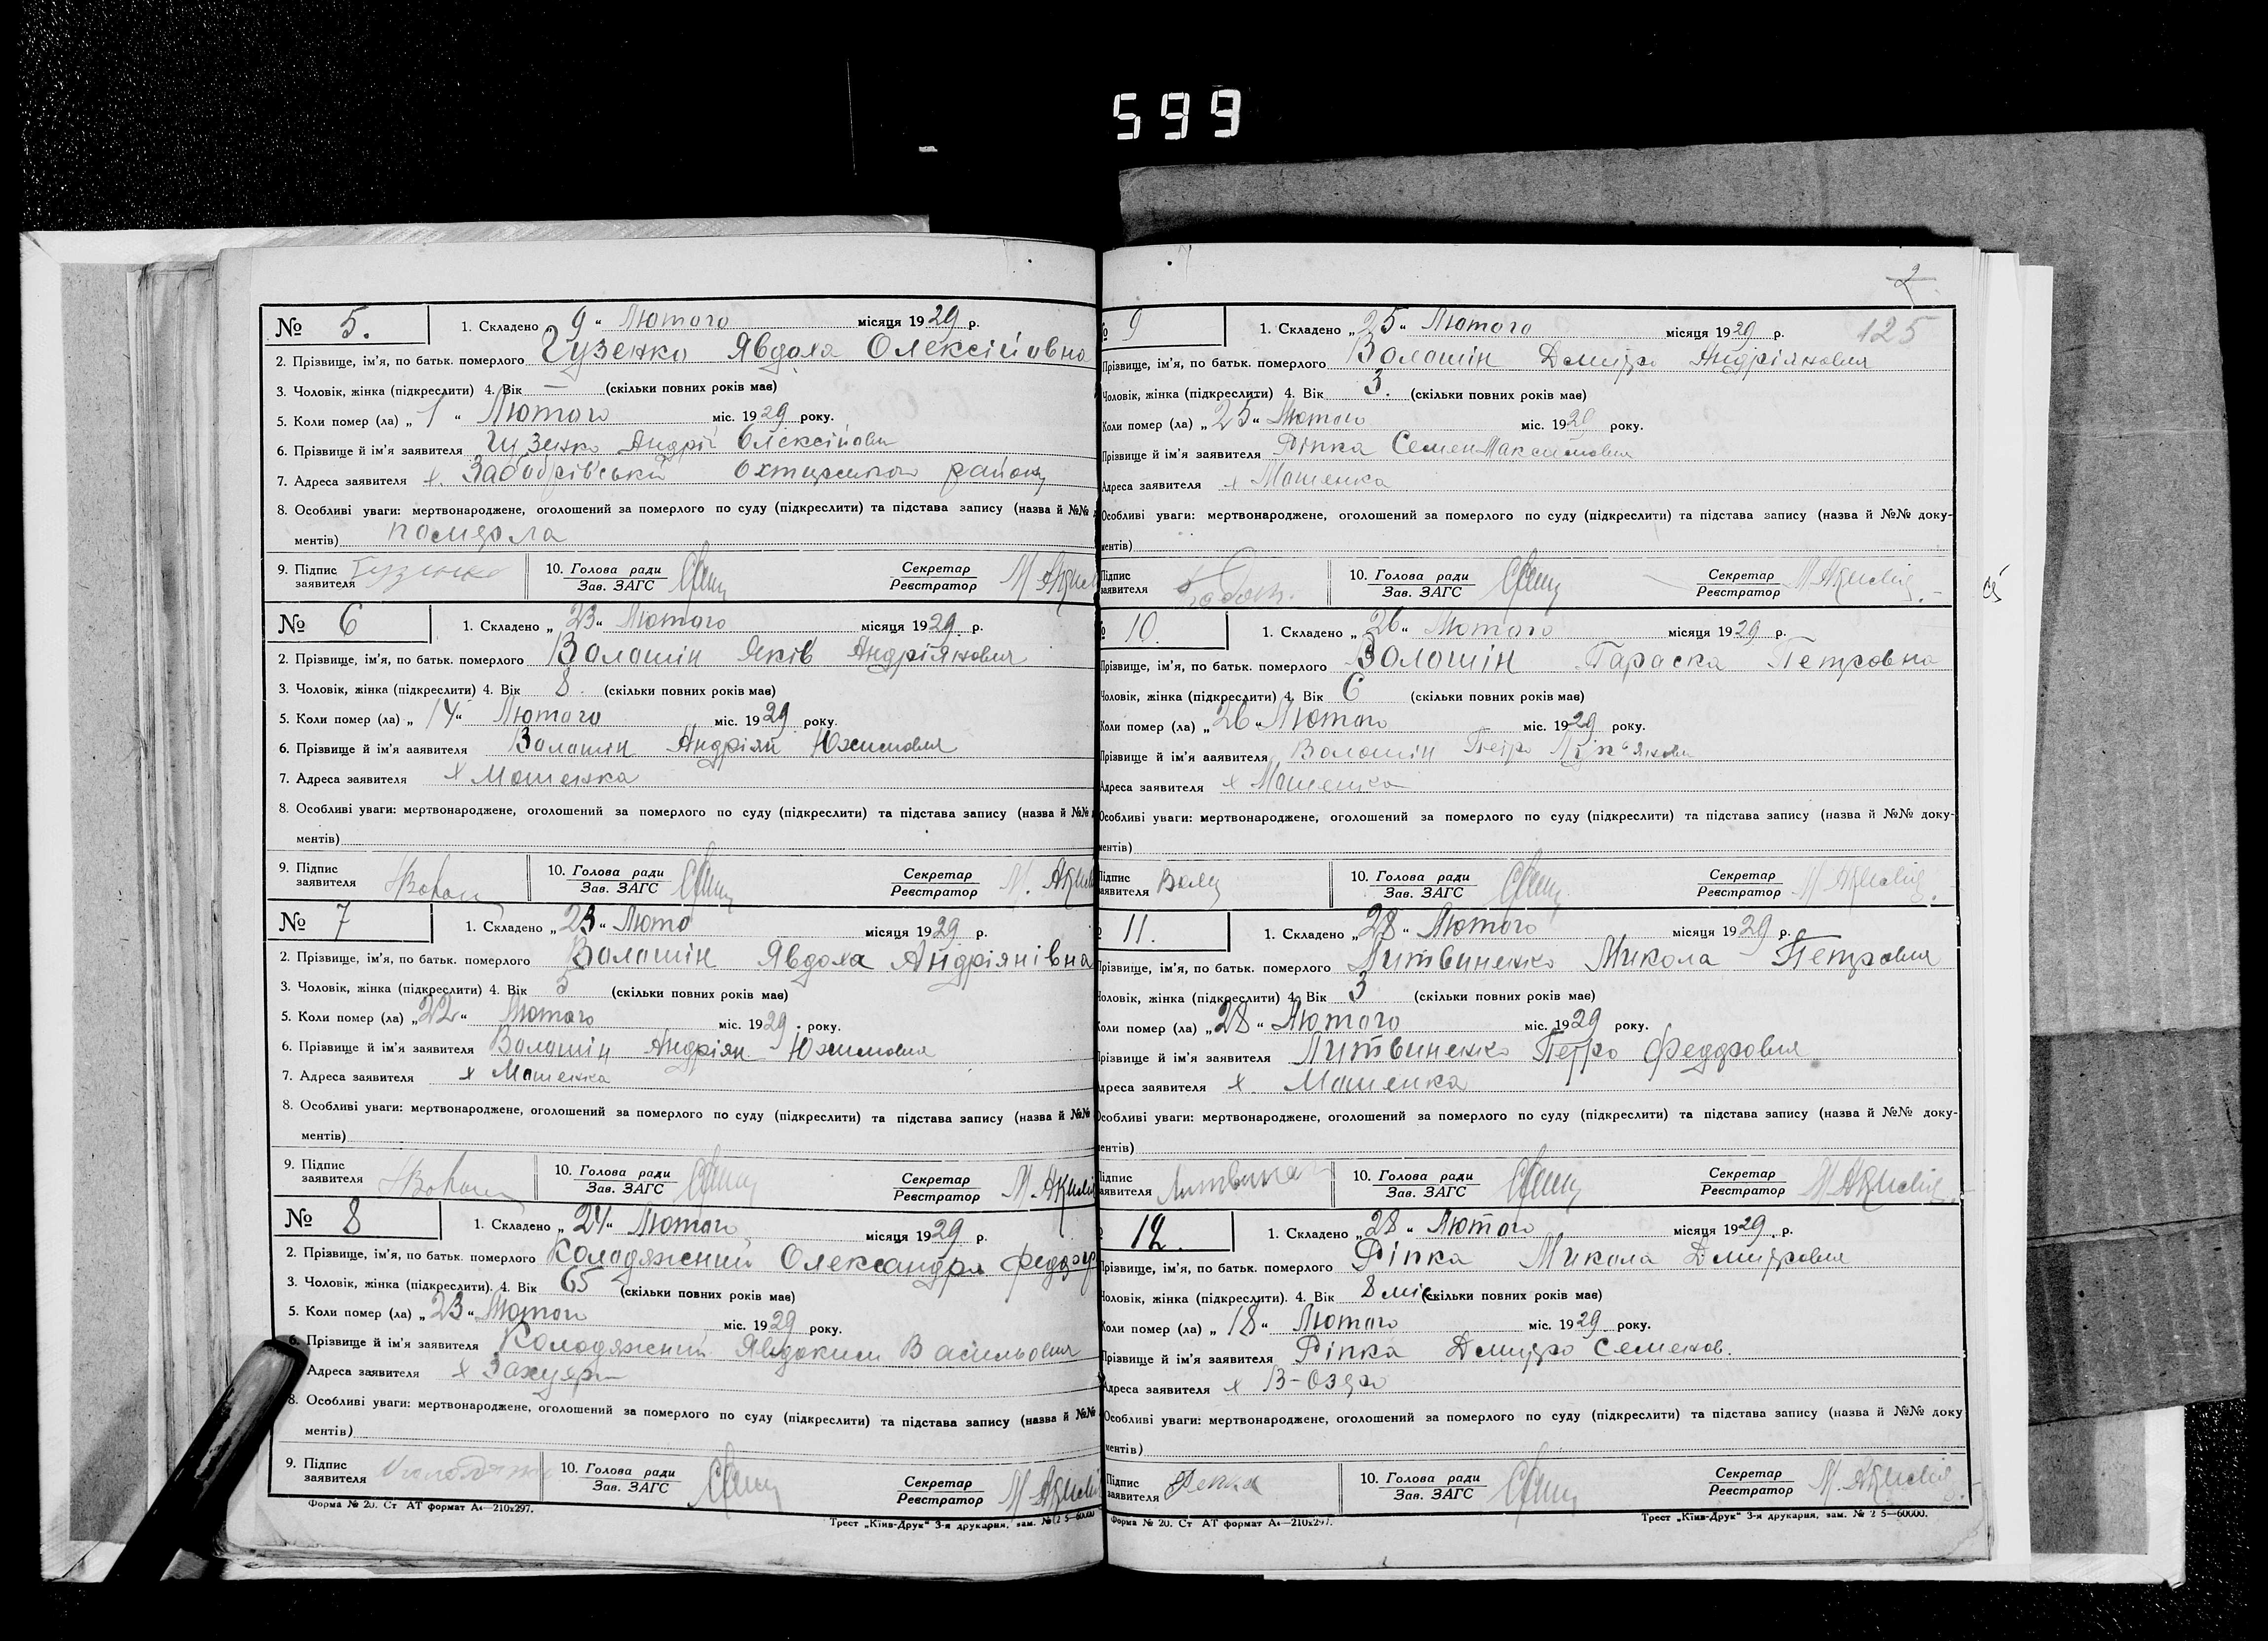 599
№ 5. 1. Складено 9 " Лютого місяця 1929 р.
2. Прізвище, ім'я, по батьк. померлого Гузенко Явдоха Олексійовна
3. Чоловік, жінка (підкреслити) 4. Вік — (скільки повних років має)
5. Коли помер (ла) „ 1 " Лютого міс. 1929 року.
6. Прізвище й ім'я заявителя Гузенко Андрій Олексійови
7. Адреса заявителя х. Охтирського району
8. Особливі уваги: мертвонароджене, оголошений за померлого по суду (підкреслити) та підстава запису (назва й №№
ментів) помдрла
9. Підпис заявителя Гузенко 10. Голова ради Зав. ЗАГС Секретар Реєстратор
№ 6 1. Складено „ 23 " Лютого місяця 1929 р.
2. Прізвище, ім'я, по батьк. померлого Волошін Яків Андріянович
3. Чоловік, жінка (підкреслити) 4. Вік 8. (скільки повних років має)
5. Коли помер (ла) „ 14 " Лютого міс. 1929 року.
6. Прізвище й ім'я заявителя Волошін Андріян Юхимович
7. Адреса заявителя х Мошенка
8. Особливі уваги: мертвонароджене, оголошений за померлого по суду (підкреслити) та підстава запису (назва й №№
ментів)
9. Підпис заявителя 10. Голова ради Зав. ЗАГС Секретар Реєстратор
№ 7 1. Складено „ 23 " Люто місяця 1929 р.
2. Прізвище, ім'я, по батьк. померлого Волошін Явдоха Андріянівна
3. Чоловік, жінка (підкреслити) 4. Вік (скільки повних років має)
5. Коли помер (ла) „ 22 " Лютого міс. 1929 року.
6. Прізвище й ім'я заявителя Волошін Андріян Юхимович
7. Адреса заявителя х Мошенка
8. Особливі уваги: мертвонароджене, оголошений за померлого по суду (підкреслити) та підстава запису (назва й №№
ментів)
9. Підпис заявителя 10. Голова ради Зав. ЗАГС Секретар Реєстратор
№ 8 1. Складено „ 24 " Лютого місяця 1929 р.
2. Прізвище, ім'я, по батьк. померлого Колодяжний Олександра
3. Чоловік, жінка (підкреслити). 4. Вік 65 (скільки повних років має)
5. Коли помер (ла) „ 23 " Лютого міс. 1929 року.
6. Прізвище й ім'я заявителя Колодяжний Явдоким Васильович
Адреса заявителя х
8. Особливі уваги: мертвонароджене, оголошений за померлого по суду (підкреслити) та підстава запису (назва й №№
ментів)
9. Підпис заявителя 10. Голова ради Зав. ЗАГС Секретар Реєстратор
Форма № 20. Ст АТ формат А4—210х297.
Трест „Київ-Друк" 3-я друкарня, зам. № 2 5—60000
2
125
9 1. Складено „ 25 " Лютого місяця 1929 р.
Прізвище, ім'я, по батьк. померлого Волошін Дмитро Андріянович
Чоловік, жінка (підкреслити) 4. Вік 3. (скільки повних років має)
Коли помер (ла) „ 25 " Лютого міс. 1929 року.
Прізвище й ім'я заявителя Ріпка Семен Максимович
Адреса заявителя х Мошенка
Особливі уваги: мертвонароджене, оголошений за померлого по суду (підкреслити) та підстава запису (назва й №№ доку-
ментів)
Підпис заявителя 10. Голова ради Зав. ЗАГС Секретар Реєстратор
10. 1. Складено „ 26 " Лютого місяця 1929 р.
Прізвище, ім'я, по батьк. померлого Волошін Параска Петровна
Чоловік, жінка (підкреслити) 4. Вік 6 (скільки повних років має)
Коли помер (ла) „ 26 " Лютого міс. 1929 року.
Прізвище й ім'я заявителя Волошін Петро
Адреса заявителя х Мошенка
Особливі уваги: мертвонароджене, оголошений за померлого по суду (підкреслити) та підстава запису (назва й №№ доку-
ментів)
Підпис заявителя 10. Голова ради Зав. ЗАГС Секретар Реєстратор
11. 1. Складено „ 28 " Лютого місяця 1929 р.
Прізвище, ім'я, по батьк. померлого Литвиненко Микола Петрович
Чоловік, жінка (підкреслити) 4. Вік 3 (скільки повних років має)
Коли помер (ла) „ 28 " Лютого міс. 1929 року.
Прізвище й ім'я заявителя Литвиненко Петро Федорович
Адреса заявителя х. Мошенка
Особливі уваги: мертвонароджене, оголошений за померлого по суду (підкреслити) та підстава запису (назва й №№ доку-
ментів)
Підпис заявителя 10. Голова ради Зав. ЗАГС Секретар Реєстратор
12. 1. Складено „ 28 " Лютого місяця 1929 р.
Прізвище, ім'я, по батьк. померлого Ріпка Микола Дмитрович
Чоловік, жінка (підкреслити). 4. Вік 8 міс (скільки повних років має)
Коли помер (ла) „ 18 " Лютого міс. 1929 року.
Прізвище й ім'я заявителя Ріпка Дмитро Семенов.
Адреса заявителя х В-Озеро
Особливі уваги: мертвонароджене, оголошений за померлого по суду (підкреслити) та підстава запису (назва й №№ доку
ментів)
Підпис заявителя Репка 10. Голова ради Зав. ЗАГС Секретар Реєстратор
Форма № 20. Ст АТ формат А4—210х297.
Трест „Київ-Друк" 3-я друкарня, зам. № 2 5—60000.